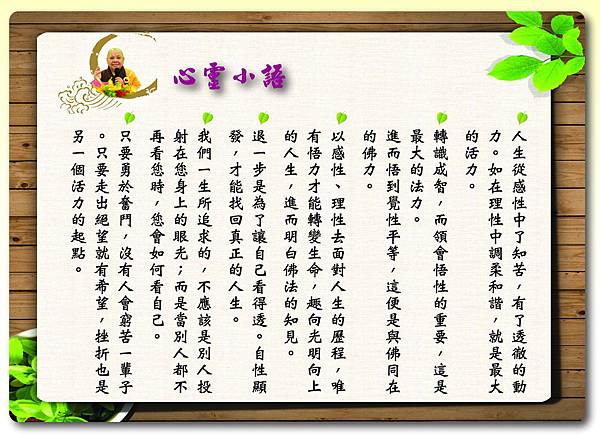 心靈小語
人生從感性中了知苦，有了透徹的動
力。如在理性中調柔和諧，就是最大
的活力。
轉識成智，而領會悟性的重要，這是
最大的法力。
進而悟到覺性平等，這便是與佛同在
的佛力。
以感性、理性去面對人生的歷程，唯
有悟力才能轉變生命，趣向光明向上
的人生，進而明白佛法的知見。
退一步是為了讓自己看得透。自性顯
發，才能找回真正的人生。
我們一生所追求的，不應該是別人投
射在您身上的眼光；而是當別人都不
再看您時，您會如何看自己。
只要勇於奮鬥，沒有人會窮苦一輩子
。只要走出絕望就有希望，挫折也是
另一個活力的起點。